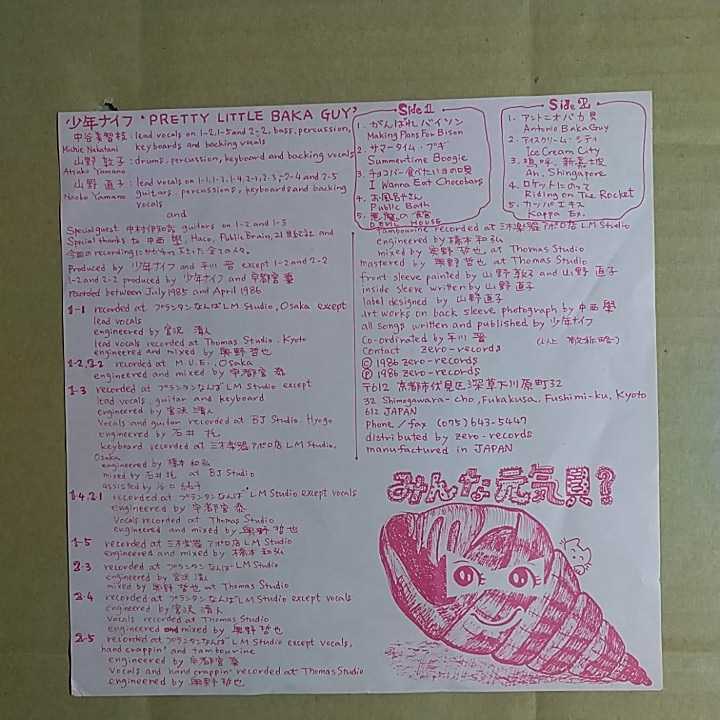 少年ナイフ 'PRETTY LITTLE BAKA GUY'
中谷美智枝: lead vocals on 1-2, 1-5 and 2-2, bass, percussion,
Michie Nakatani keyboards and backing vocals
山野 敦子: drums, percussion, keyboard and backing vocals
Atsuko Yamano
山野 直子: lead vocals on 1-1, 1-3, 1-4, 2-1, 2-3, 2-4 and 2-5
Naoko Yamano guitars, percussions, keyboards and backing
vocals
and
Special guest 中村伊知哉 guitars on 1-2 and 1-3
Special thanks to 中西 Haco, Public Brain, and
今回の
Produced by 少年ナイフ and 平川 晋 except 1-2 and 2-2
1-2 and 2-2 produced by 少年ナイフ and 宇都宮 泰
recorded between July 1985 and April 1986
1-1 recorded at プランタンなんば LM Studio, Osaka except
lead vocals
engineered by 宮沢 清人
lead vocals recorded at Thomas Studio, Kyoto
engineered and mixed by 奥野 哲也
1-2, 2-2 recorded at M.U.E., Osaka
engineered and mixed by 宇都宮 泰
1-3 recorded at プランタンなんば LM Studio except
lead vocals, guitar and keyboard
engineered by 宮沢 清人
vocals and guitar recorded at BJ Studio, Hyogo
engineered by 石井
keyboard recorded at 三木楽器アポロ店 LM Studio,
Osaka
engineered by 橋本 和弘
mixed by 石井 at BJ Studio
assisted by
1-4, 2-1 recorded at プランタンなんば LM Studio except vocals
engineered by 宇都宮 泰
Vocals recorded at Thomas Studio
engineered and mixed by 奥野 哲也
1-5 recorded at 三木楽器アポロ店 LM Studio
engineered and mixed by 橋本 和弘
2-3 recorded at プランタンなんば LM Studio
engineered by 宮沢 清人
mixed by 奥野 哲也 at Thomas Studio
2-4 recorded at プランタンなんば LM Studio except vocals
engineered by 宮沢 清人
Vocals recorded at Thomas Studio
engineered and mixed by 奥野 哲也
2-5 recorded at プランタンなんば LM Studio except vocals,
hand crappin' and tambourine
engineered by 宇都宮 泰
Vocals and hand crappin' recorded at Thomas Studio
engineered by 奥野 哲也
Side 1
1. がんばれバイソン
Making Plans For Bison
2. サマータイム・ブギ
Summertime Boogie
3. チョコバー食べたい日の唄
I Wanna Eat Chocobars
4. お風呂やさん
Public Bath
5. 悪魔の館
DEVIL HOUSE
Side 2
1. アントニオバカ貝
Antonio Baka Guy
2. アイスクリーム・シティ
Ice Cream City
3. 嗚呼、新嘉坡
Ah, Shingapore
4. ロケットにのって
Riding on The Rocket
5. カッパエキス
Kappa Ex.
tambourine recorded at 三木楽器アポロ店 LM Studio
engineered by 橋本 和弘
mixed by 奥野 哲也, at Thomas Studio
mastered by 奥野 哲也 at Thomas Studio
front sleeve painted by 山野 敦子 and 山野 直子
inside sleeve written by 山野 直子
label designed by 山野 直子
art works on back sleeve, photograph by 中西
all songs written and published by 少年ナイフ
co-ordinated by 平川 晋 (以上 敬称略)
contact zero-records
© 1986 zero-records
℗ 1986 zero-records
〒612 京都市伏見区深草下川原町32
32 Shimogawara-cho, Fukakusa, Fushimi-ku, Kyoto
612 JAPAN
phone/fax (075) 643-5447
distributed by zero-records
manufactured in JAPAN
みんな元気貝?